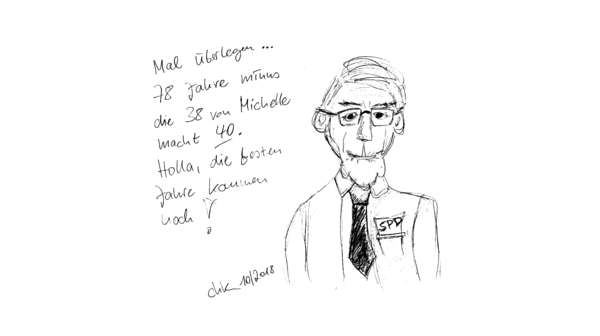 Mal überlegen...
78 Jahre minus
die 38 von Michelle
macht 40.
Holla, die besten
Jahre kommen
noch!
SPD
10/2018